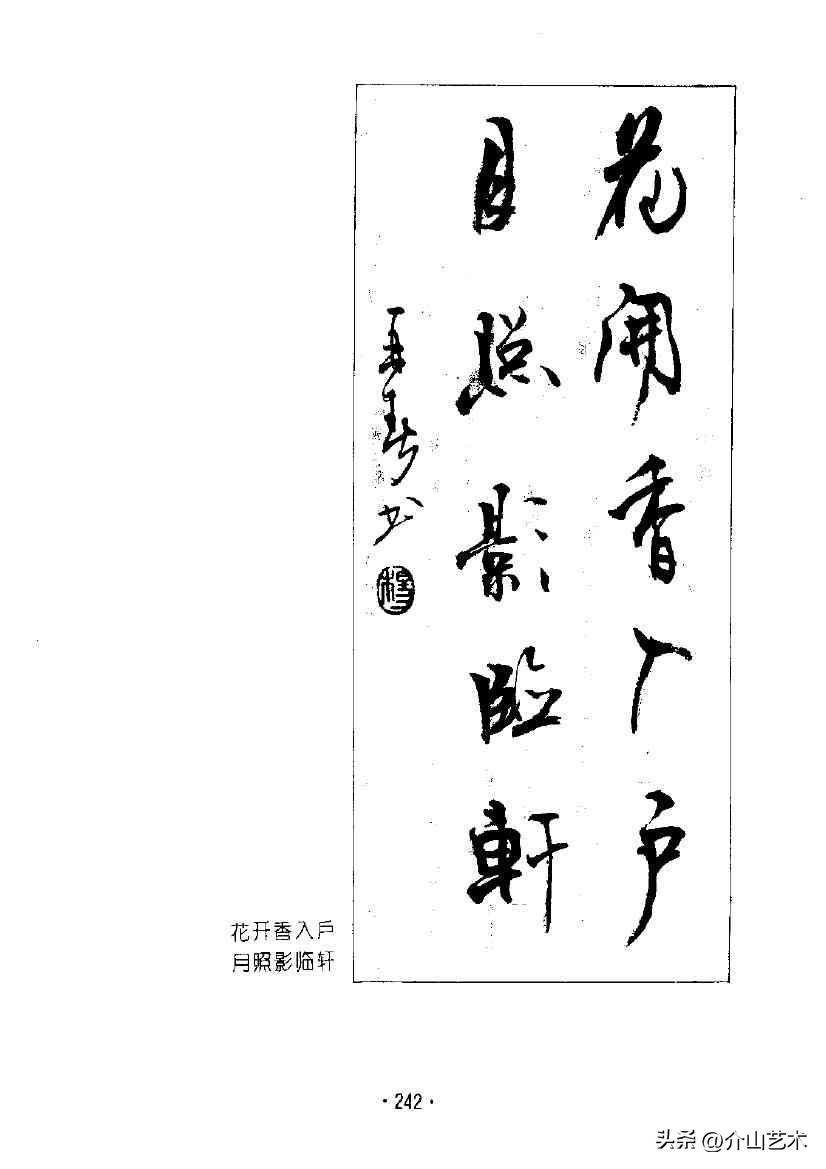 花開香入户
月照影臨軒
再春书
花开香入户
月照影临轩
·242·
头条@介山艺术